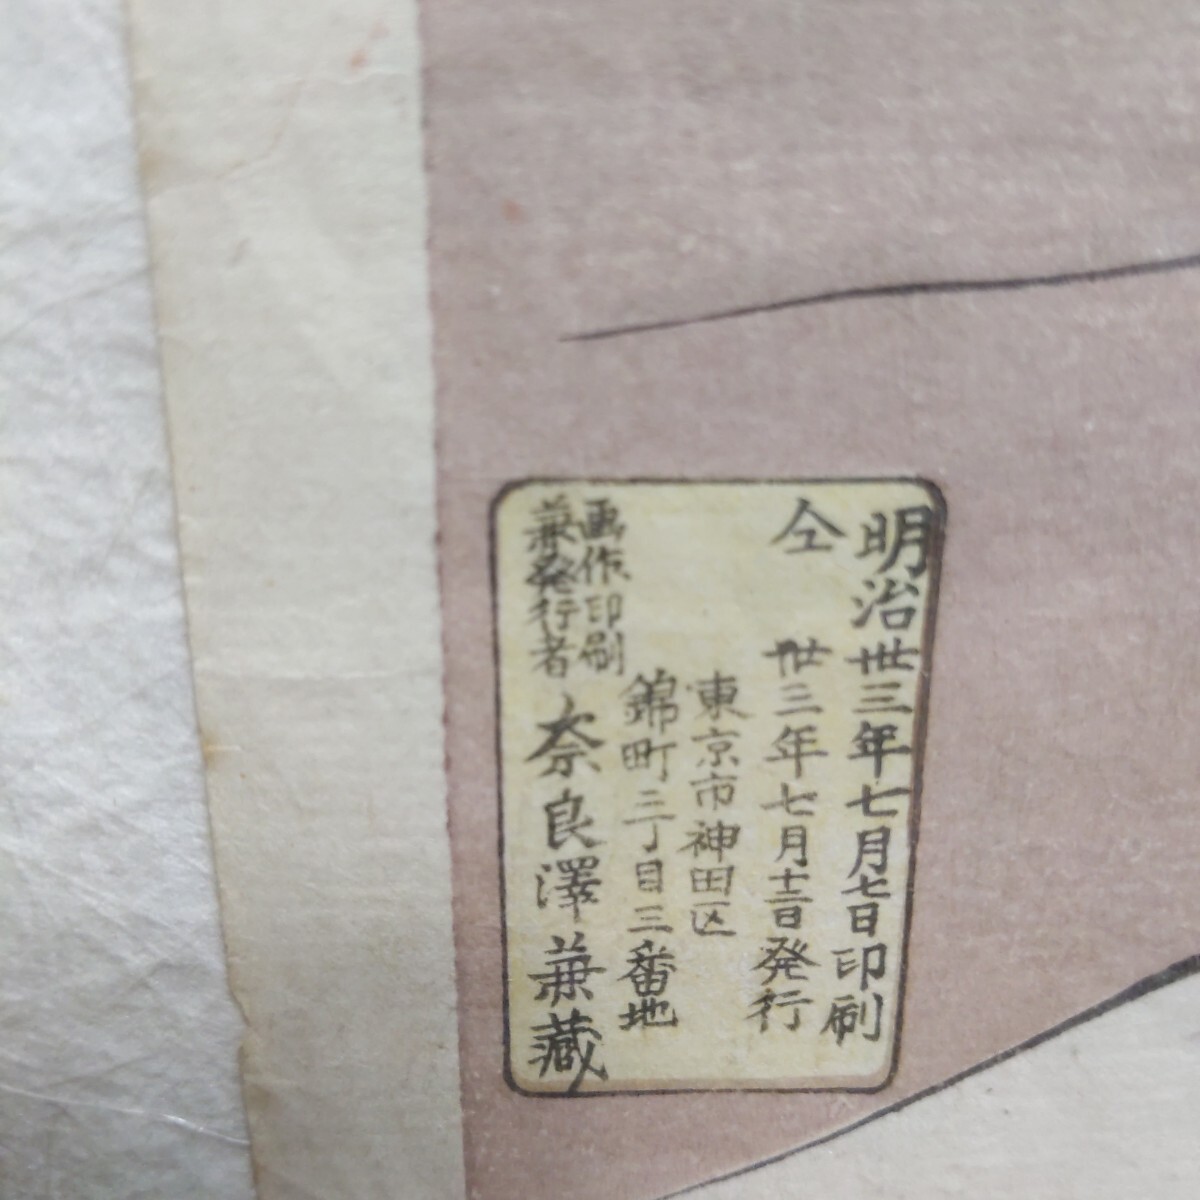 明治丗三年七月七日印刷
仝　丗三年七月十二日発行
東京市神田区
錦町三丁目三番地
画作印刷
兼発行者
奈良澤兼蔵